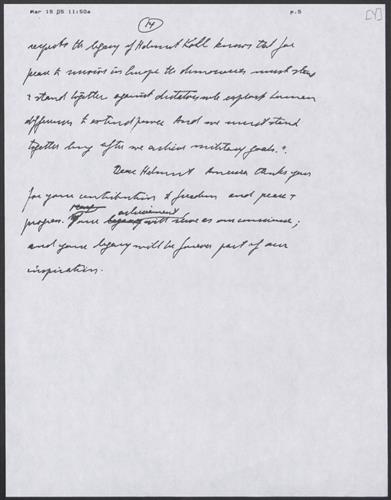 Mar 15 05 11:50a p.5 [4]
14
regards the legacy of Helmut Kohl knows that for
peace to survive in Europe the democracies must stand
& stand together against dictators who exploit human
differences to extend power. And we must stand
together long after we achieve military goals.
Dear Helmut America thanks you
for your contribution to freedom and peace &
progress. Your achievement will serve as our conscience;
and your legacy will be forever part of our
inspiration.